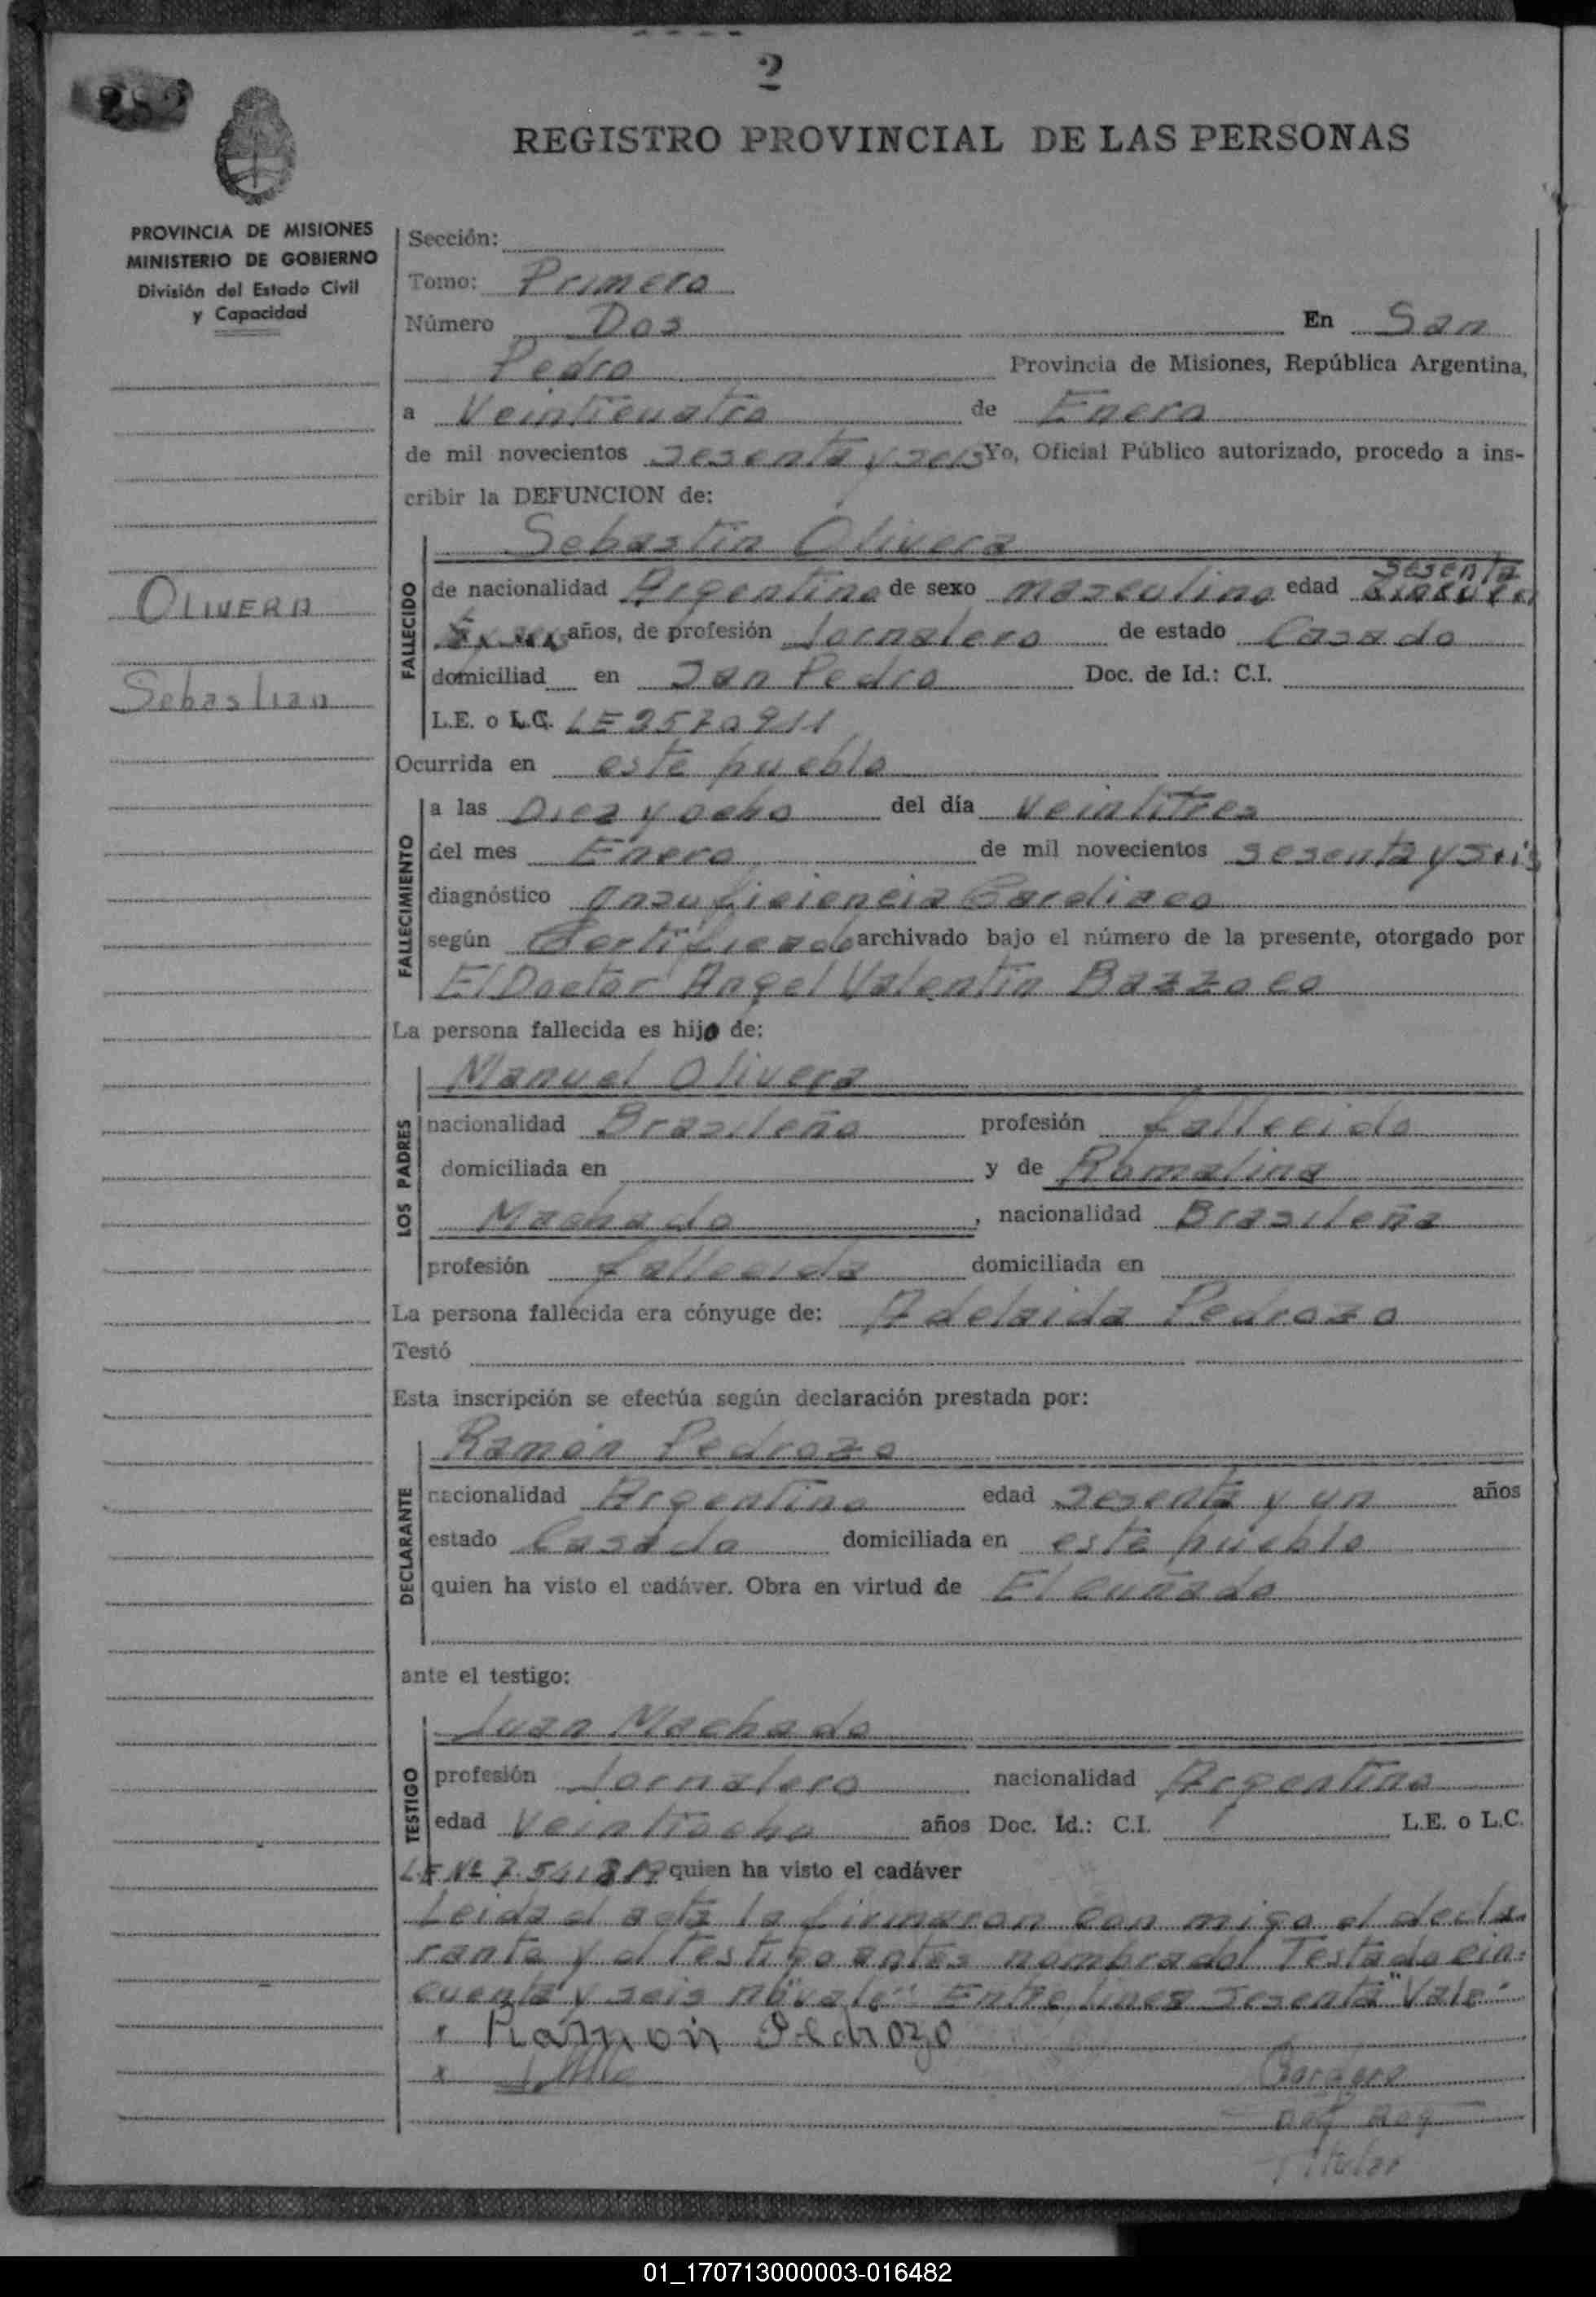 2
REGISTRO PROVINCIAL DE LAS PERSONAS
PROVINCIA DE MISIONES
MINISTERIO DE GOBIERNO
División del Estado Civil
y Capacidad
OLIVERA
Sebastian
Sección:
Tomo: Primero
Número Dos En San
Pedro Provincia de Misiones, República Argentina,
a Veinticuatro de Enero
de mil novecientos sesenta y seis Yo, Oficial Público autorizado, procedo a ins-
cribir la DEFUNCION de:
Sebastin Olivera
sesenta
FALLECIDO
de nacionalidad Argentina de sexo masculino edad
años, de profesión Jornalero de estado Casado
domiciliad en San Pedro Doc. de Id.: C.I.
L.E. o L.C. LE 2570911
Ocurrida en este pueblo
FALLECIMIENTO
a las Diez y ocho del día Veintitres
del mes Enero de mil novecientos sesenta y seis
diagnóstico Insuficiencia Cardiaca
según Certificado archivado bajo el número de la presente, otorgado por
El Doctor Angel Valentin Bazzolo
La persona fallecida es hijo de:
LOS PADRES
Manuel Olivera
nacionalidad Brasileño profesión fallecido
domiciliada en y de Romalina
Machado, nacionalidad Brasileña
profesión fallecida domiciliada en
La persona fallecida era cónyuge de: Adelaida Pedrozo
Testó
Esta inscripción se efectúa según declaración prestada por:
DECLARANTE
Ramón Pedrozo
nacionalidad Argentino edad sesenta y un años
estado Casado domiciliada en este pueblo
quien ha visto el cadáver. Obra en virtud de El cuñado
ante el testigo:
TESTIGO
Juan Machado
profesión Jornalero nacionalidad Argentino
edad Veintiocho años Doc. Id.: C.I. L.E. o L.C.
L.E Nº 7.541819 quien ha visto el cadáver
Leida el acta la firmaron con migo el decla
rante y el testigo antes nombrado! Testado cin:
cuenta y seis no "vale" Entre linea sesenta "Vale"
Ramon Pedrozo
Titular
01_170713000003-016482